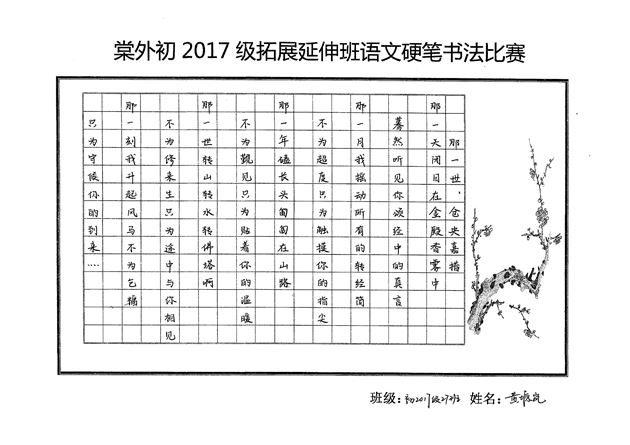 棠外初 2017 级拓展延伸班语文硬笔书法比赛
那一世，仓央嘉措
那一天闭目在金殿香雾中
蓦然听见你颂经中的真言
那一月我摇动所有的转经筒
不为超度只为触摸你的指尖
那一年磕长头匍匐在山路
不为觐见只为贴着你的温暖
那一世转山转水转佛塔啊
不为修来生只为途中与你相见
那一刻我升起风马不为乞福
只为守候你的到来……
班级：初2017级27班 姓名：黄